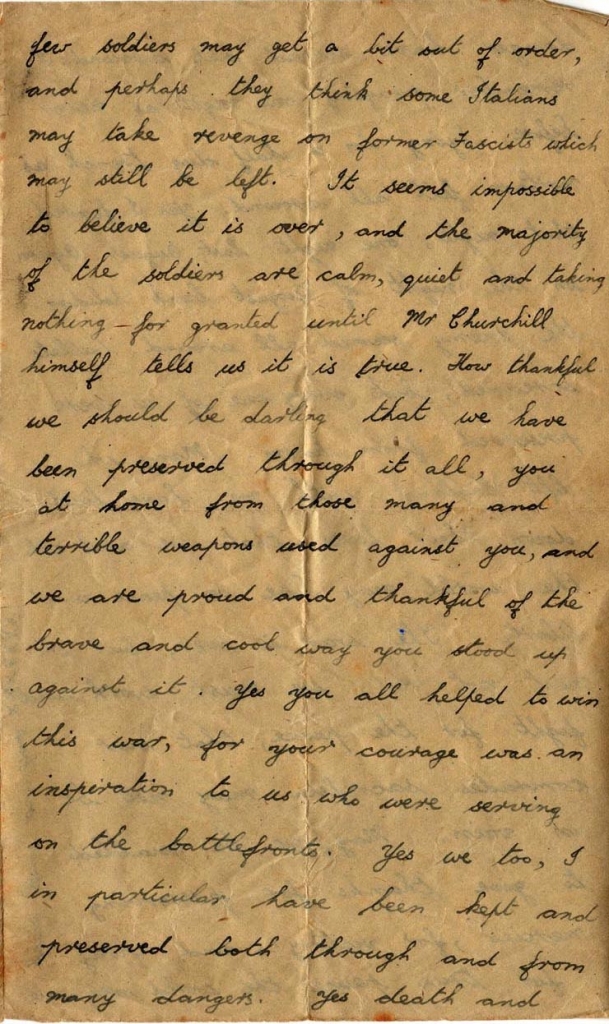 few soldiers may get a bit out of order,
and perhaps they think some Italians
may take revenge on former Fascists which
may still be left. It seems impossible
to believe it is over, and the majority
of the soldiers are calm, quiet and taking
nothing - for granted until Mr Churchill
himself tells us it is true. How thankful
we should be darling that we have
been preserved through it all, you
at home from those many and
terrible weapons used against you, and
we are proud and thankful of the
brave and cool way you stood up
against it. Yes you all helped to win
this war, for your courage was an
inspiration to us who were serving
on the battlefronts. Yes we too, I
in particular have been kept and
preserved both through and from
many dangers. Yes death and